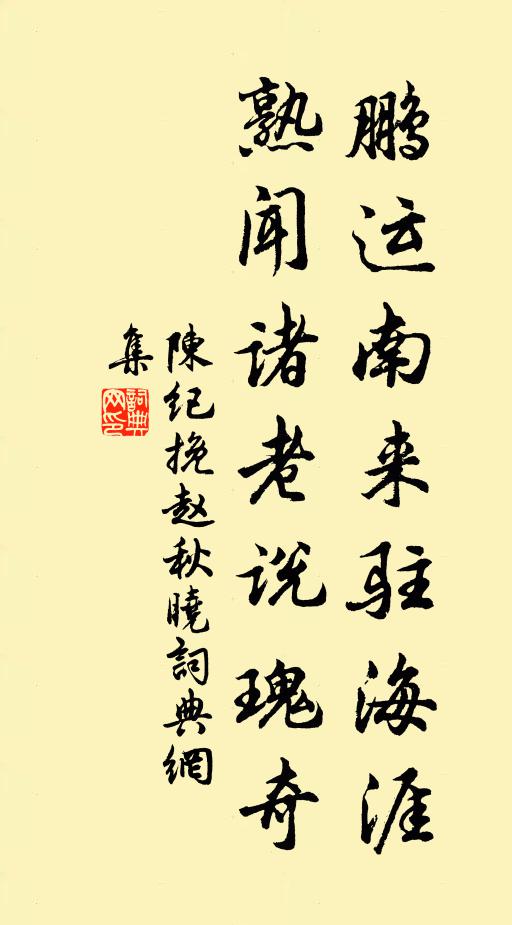 鹏运南来驻海涯
熟闻诸老说瑰奇
陳纪挽赵秋曉詞典網
集
詞典
网印